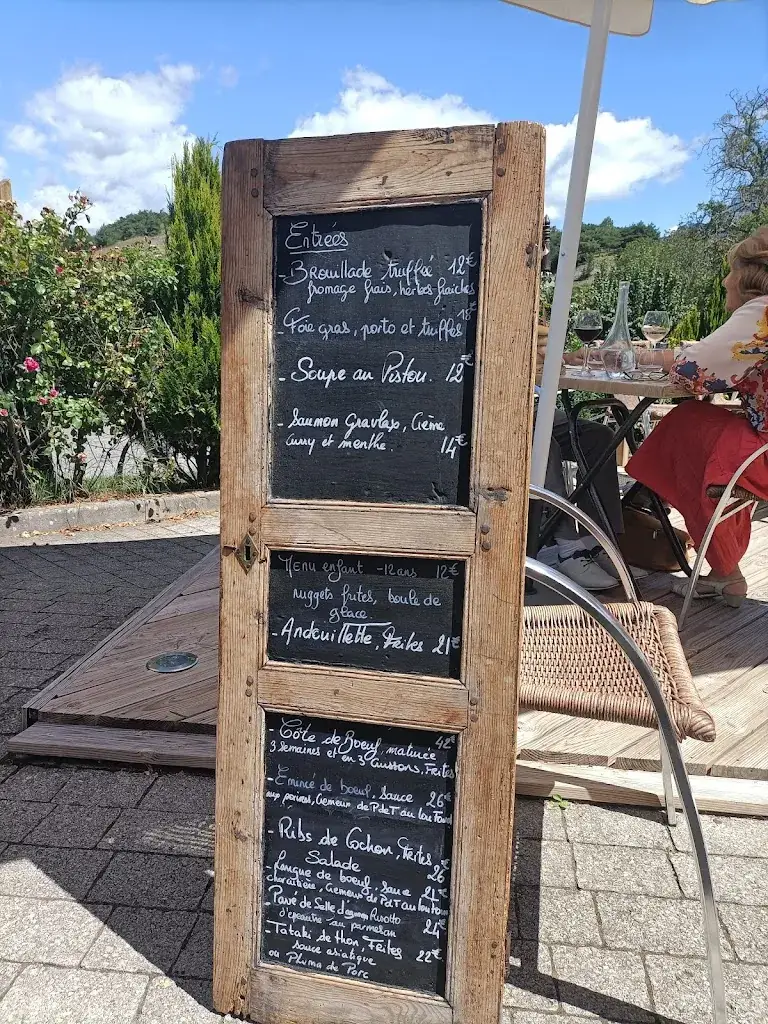 Entrées
- Brouillade truffée 12€
fromage frais, herbes fraiches
- Foie gras, porto et truffes 18€
- Soupe au Pistou. 12€
- Saumon Gravlax, Crème
Curry et menthe. 14€
Menu enfant -12 ans 12€
nuggets frites, boule de
glace
- Andouillette, Frites 21€
- Côte de Boeuf, maturée 42€
3 semaines et en 3 Cuissons, Frites
- Emincé de boeuf, Sauce 26€
aux poivres, Gemeur de P de T au
- Ribs de Cochon, Frites
Salade 26€
- Langue de boeuf, Sauce 21€
charcutière, Gemeur de P de T au
- Pavé de Selle d'agneau Risotto
d'épeautre au parmesan 24€
- Tataki de thon, Frites
sauce asiatique 22€
ou Pluma de Porc